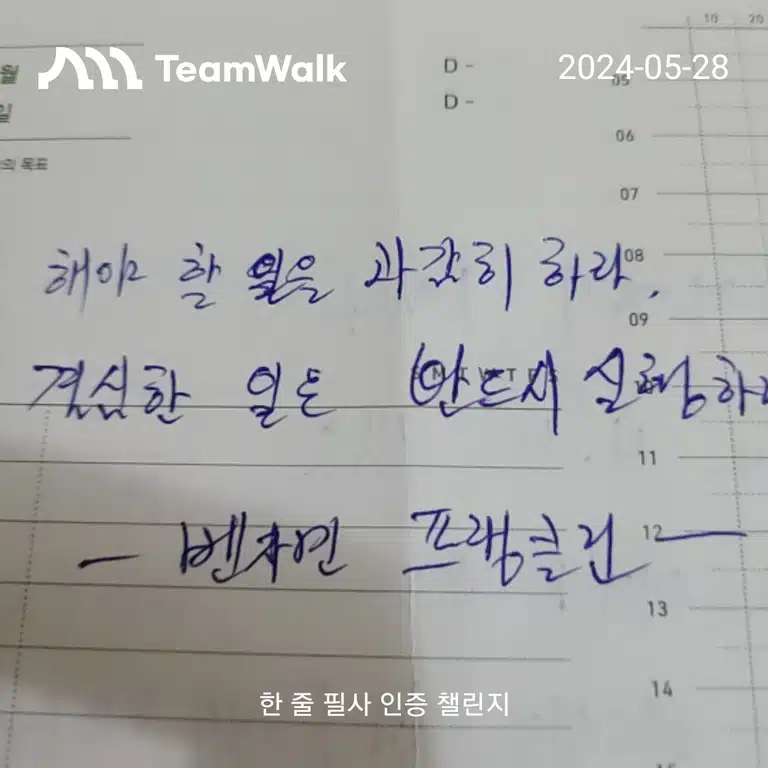 TeamWalk
2024-05-28
월
일
의 목표
D -
D -
10 20
05
06
07
08
09
11
12
13
14
해야 할 일을 과감히 하라.
결심한 일은 반드시 실행하라
- 벤자민 프랭클린 -
한 줄 필사 인증 챌린지